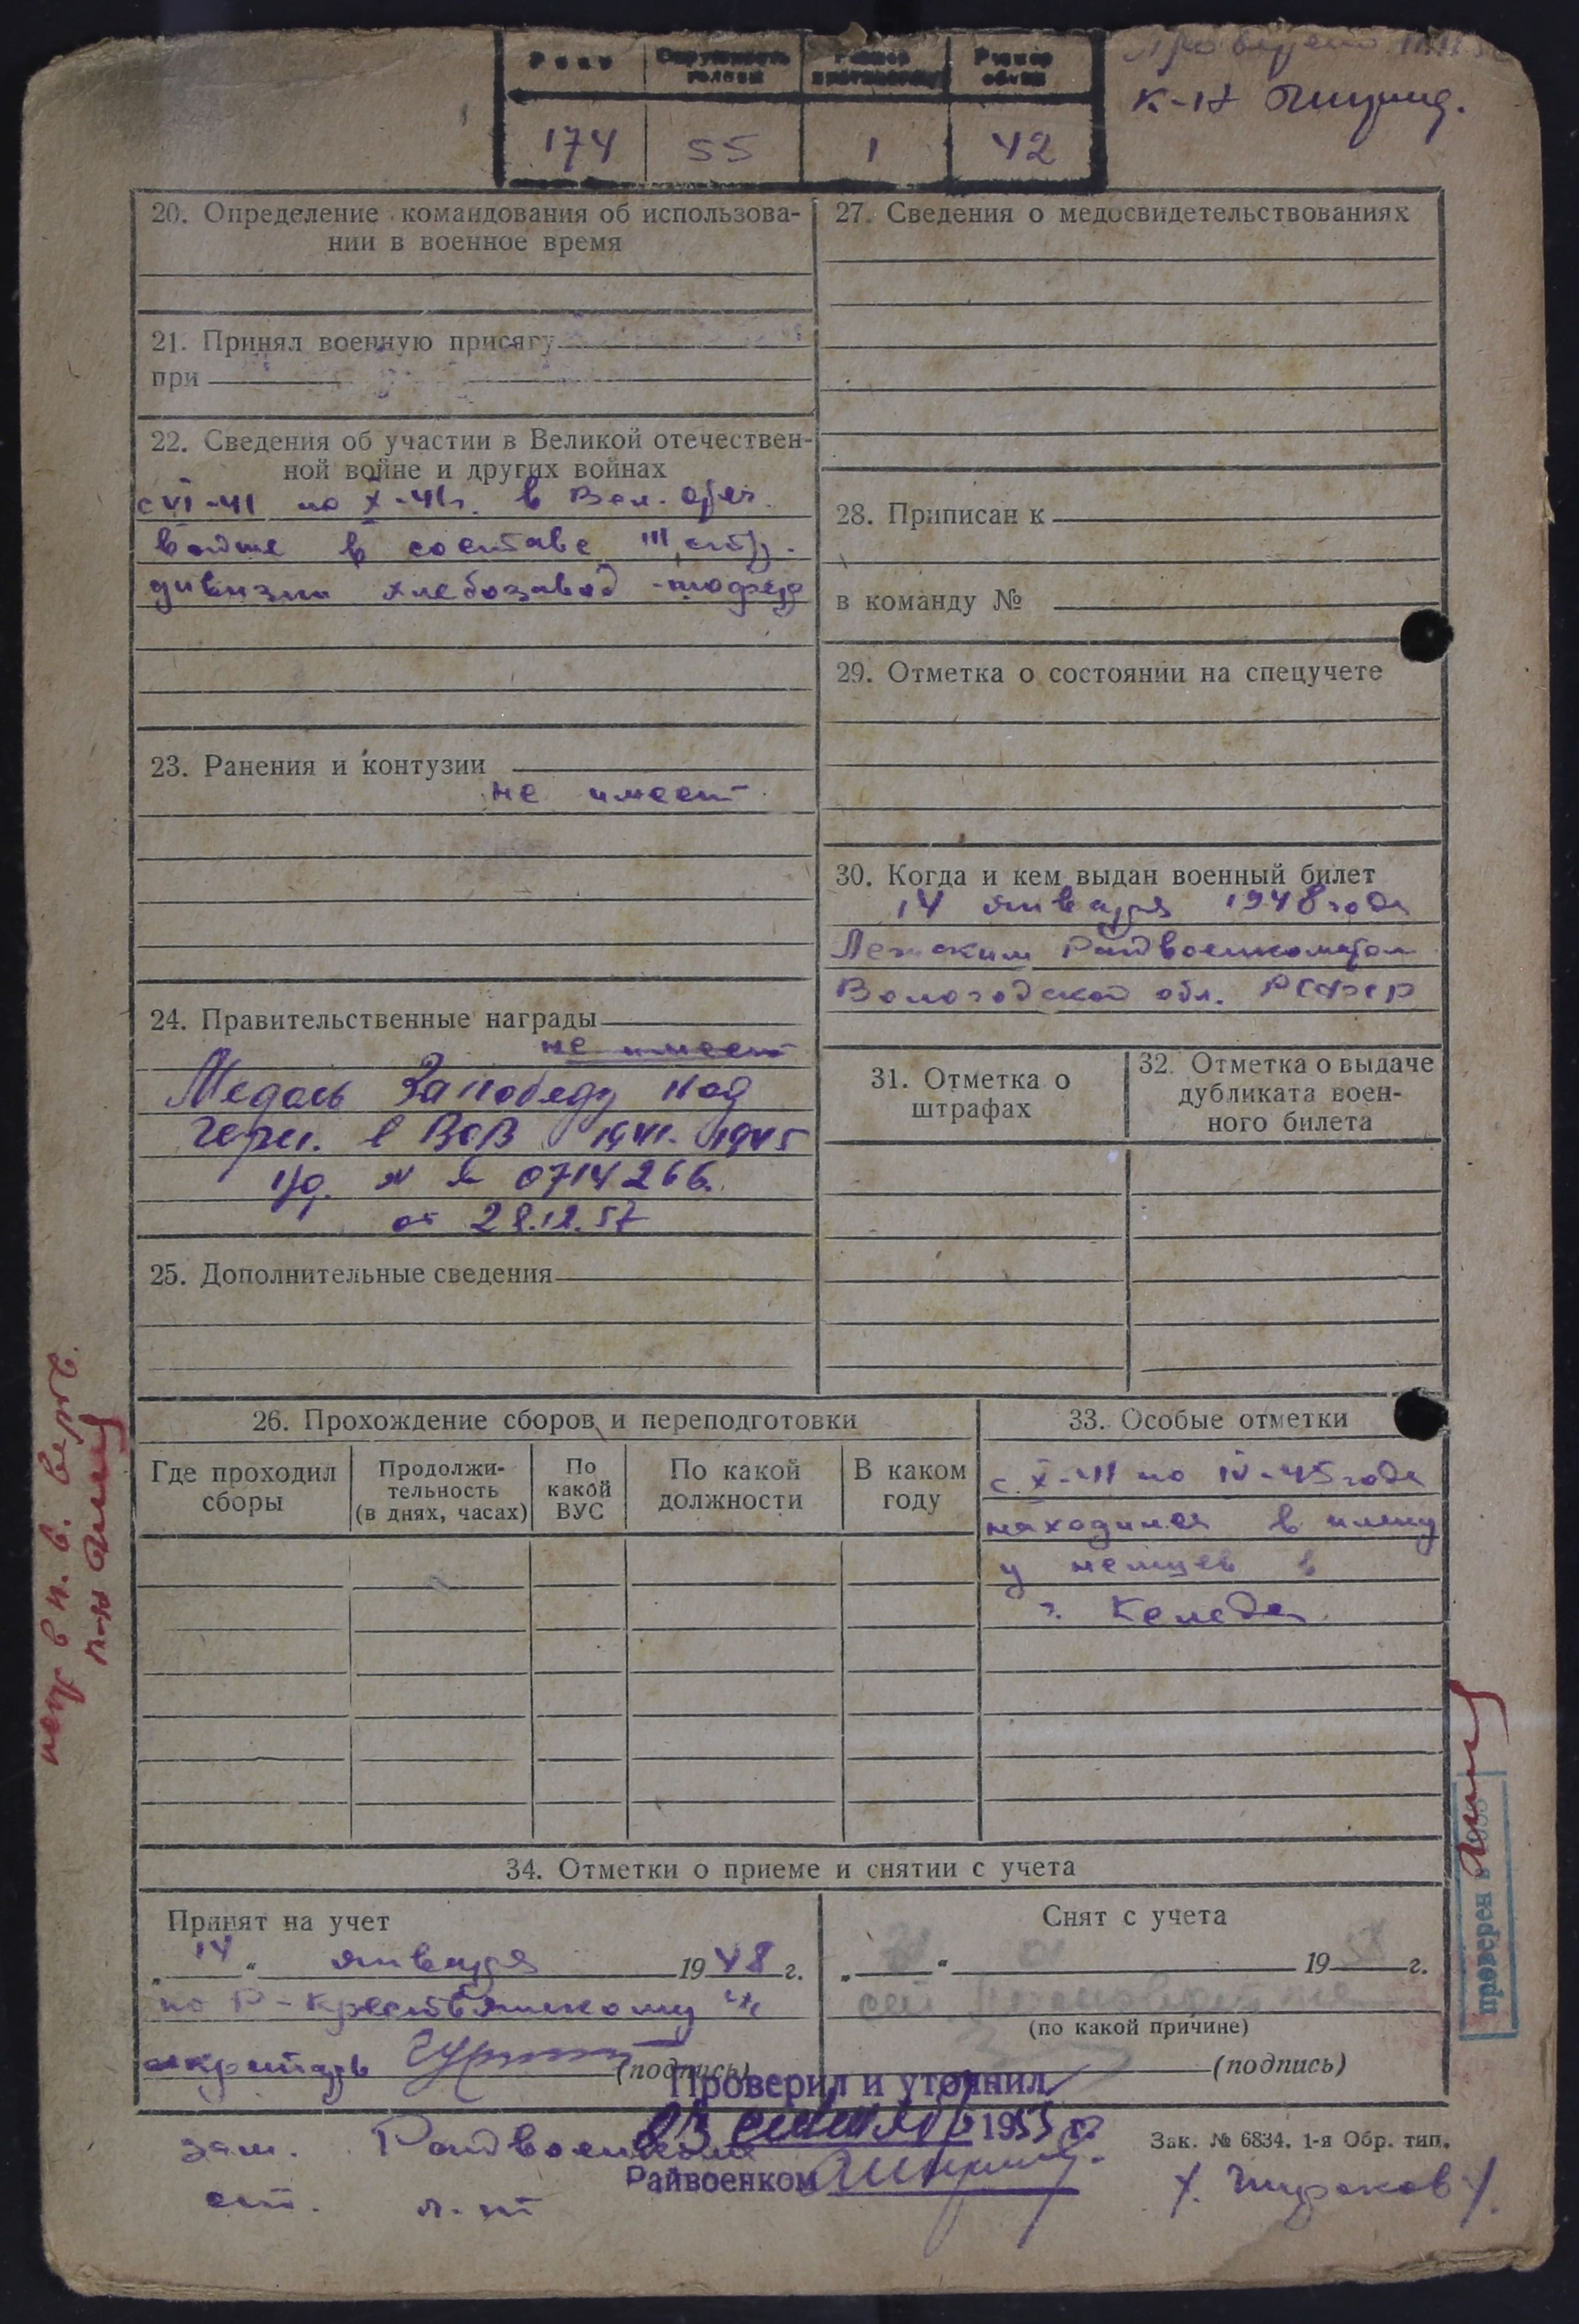 Рост Окружность головы Размер противогаза Размер обуви
174 55 1 42
Проверено
К-н
20. Определение командования об использова-
нии в военное время
21. Принял военную присягу
при
22. Сведения об участии в Великой отечествен-
ной войне и других войнах
с VI-41 по X-41г. в Вел. отеч.
войне в составе 111 стр.
дивизии хлебозавод
23. Ранения и контузии
не имеет
24. Правительственные награды
не имеет
Медаль За победу над
Герм. в ВОВ 1941-1945
уд. № 0714266.
от 28.12.57
25. Дополнительные сведения
27. Сведения о медосвидетельствованиях
28. Приписан к
в команду №
29. Отметка о состоянии на спецучете
30. Когда и кем выдан военный билет
14 января 1948 года
Лежским Райвоенкоматом
Вологодской обл. РСФСР
31. Отметка о
штрафах
32. Отметка о выдаче
дубликата воен-
ного билета
26. Прохождение сборов и переподготовки
Где проходил
сборы
Продолжи-
тельность
(в днях, часах)
По
какой
ВУС
По какой
должности
В каком
году
33. Особые отметки
с X-41 по IV-45 года
находился в плену
у немцев в
г.
34. Отметки о приеме и снятии с учета
Принят на учет
„14“ января 1948 г.
по Р-Крестьянскому
(подпись)
Снят с учета
„ “ 19 г.
(по какой причине)
(подпись)
Проверил и уточнил
1955 г.
Райвоенком
зам. Райвоенкома
ст. л-т
Зак. № 6834. 1-я Обр. тип.
проверен в